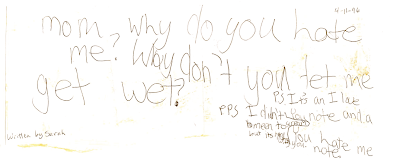 4-11-96
mom, why do you hate
me? Why don't you let me
get wet?
PS It's an I love
you note and a
you hate
me note
PPS I didn't
mean to
but its
Written by Sarah